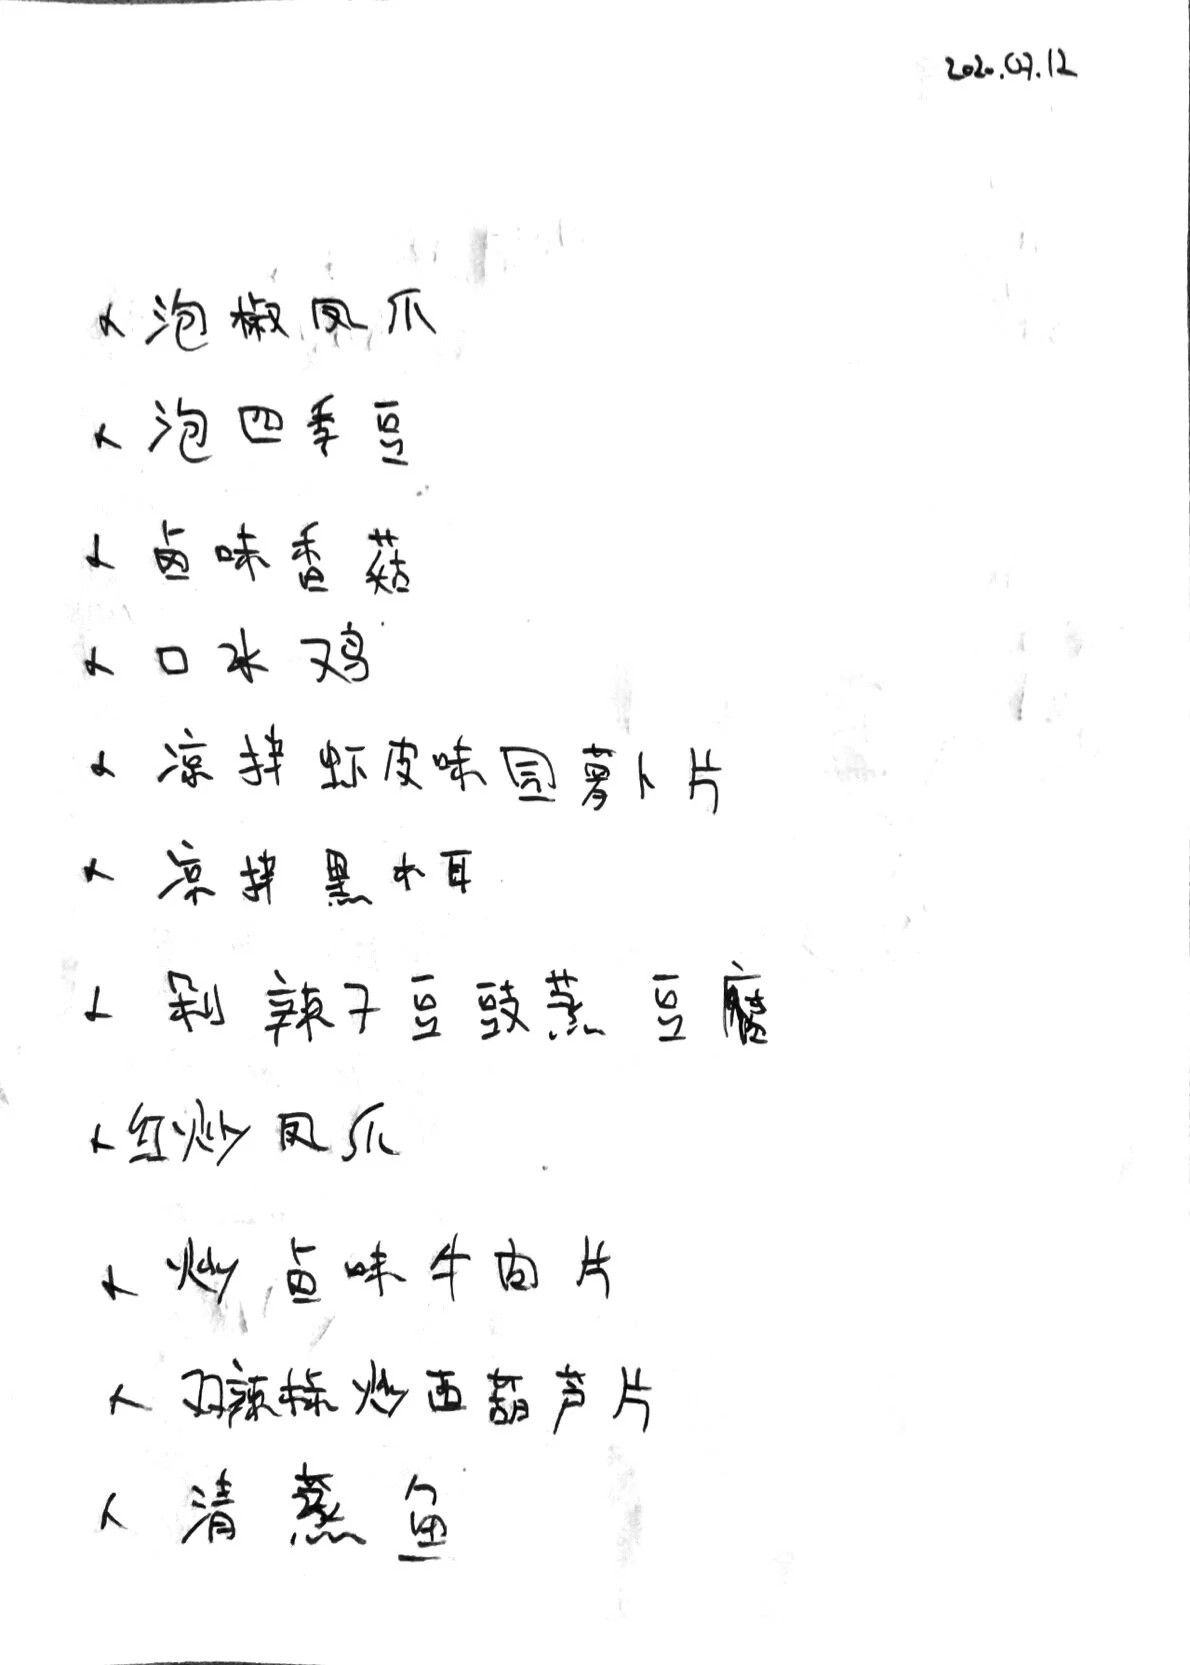 2020.07.12
泡椒凤爪
泡四季豆
卤味香菇
口水鸡
凉拌虾皮味圆萝卜片
凉拌黑木耳
剁辣子豆豉蒸豆腐
红炒凤爪
炒卤味牛肉片
双辣椒炒西葫芦片
清蒸鱼